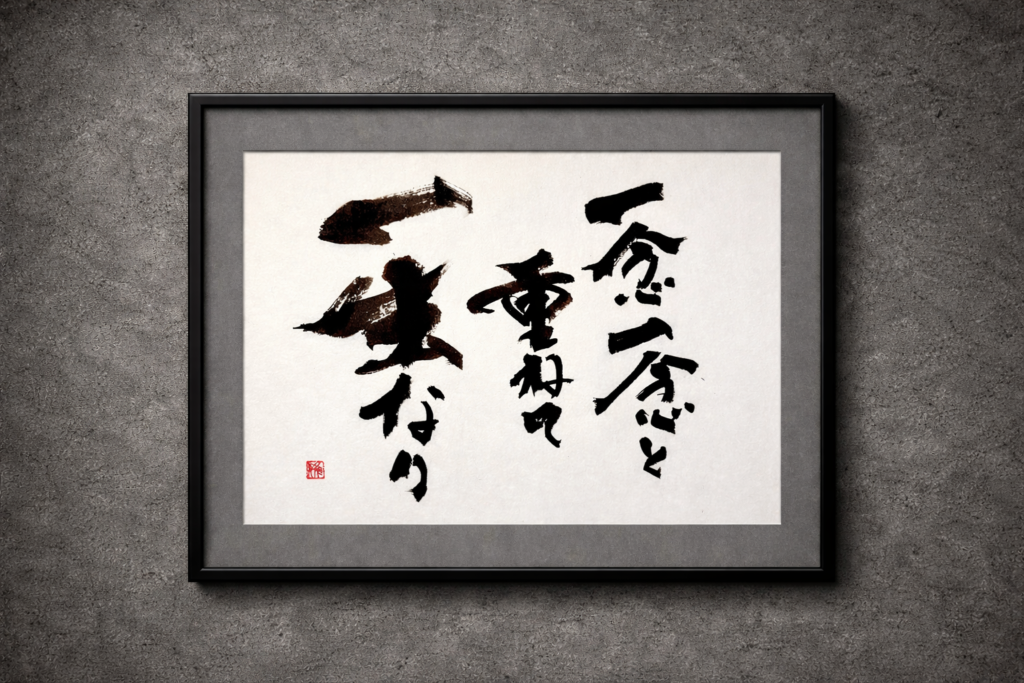 一念一念と
重ねて
一生なり